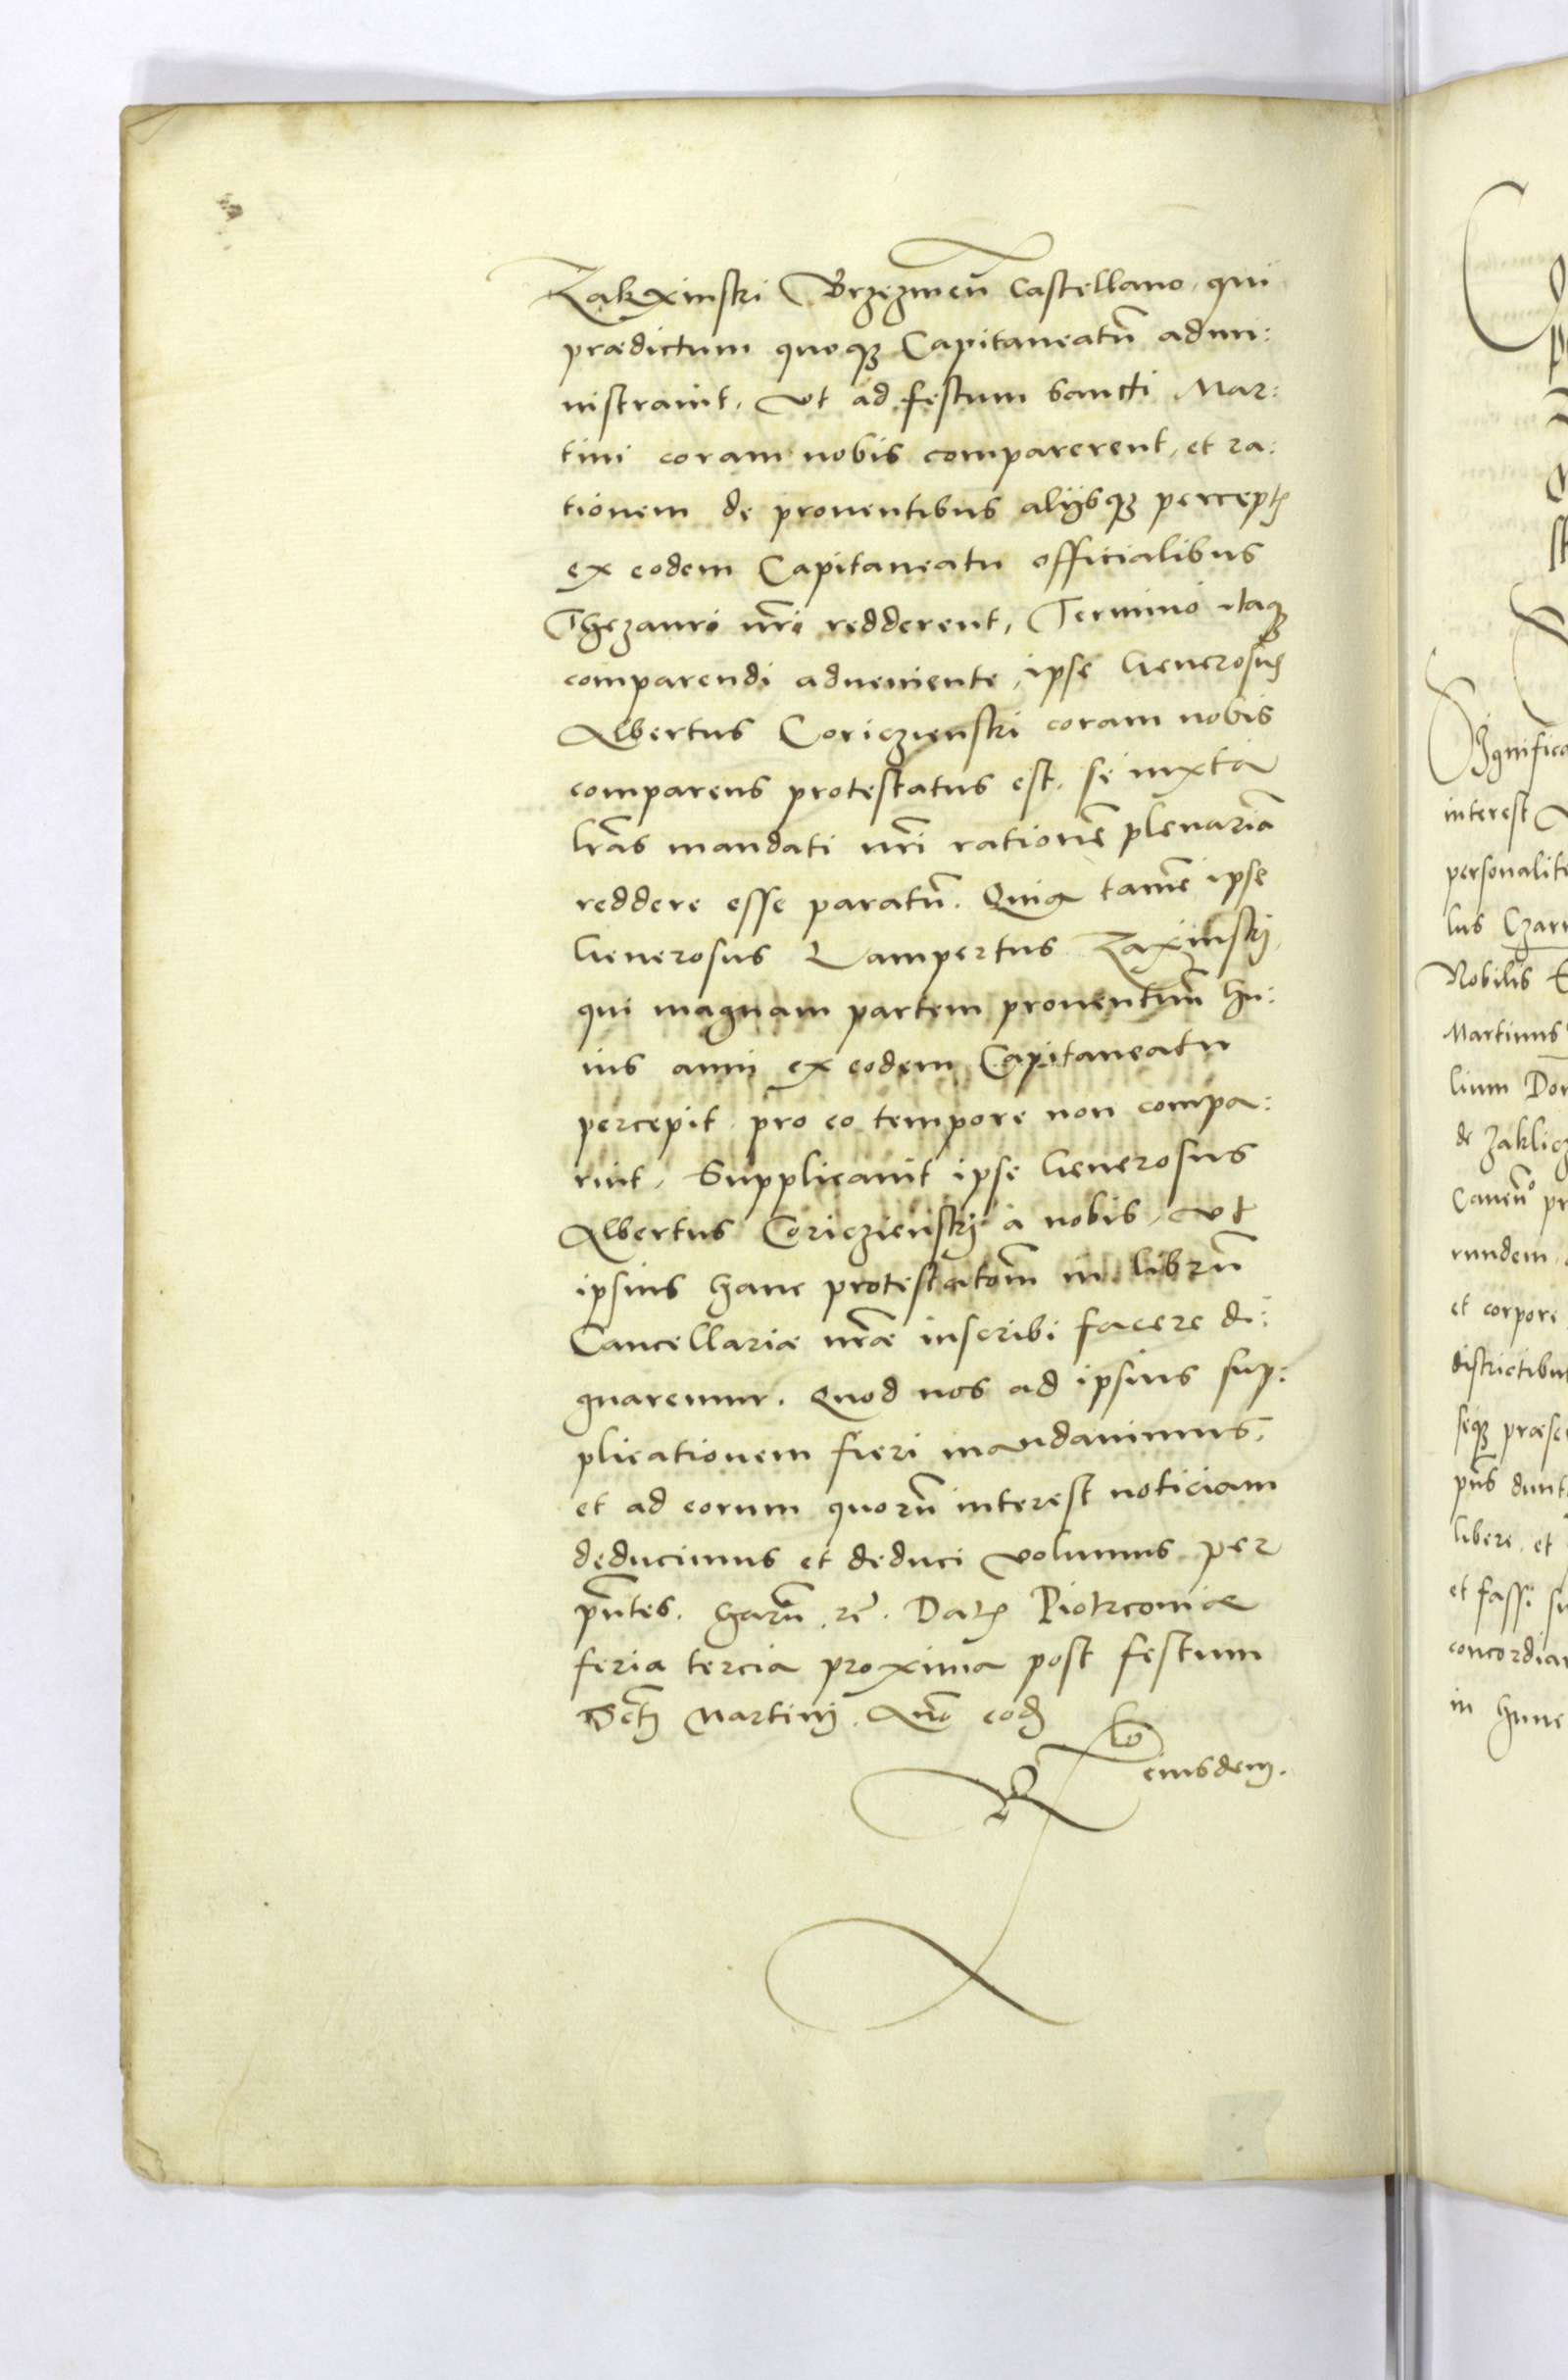 Zakxinski Brzezinen̄ Castellano, qui
prædictum quoqꝫ Capitaneatū admi:
nistrauit, vt ad festum Sancti Mar:
tini coram nobis comparerent, et ra:
tionem de prouentibus alijsqꝫ perceptꝭ
ex eodem Capitaneatu officialibus
Thezauri nr̄i redderent, Termino itaqꝫ
comparendi adueniente, ipse Generosus
Albertus Coriczienski coram nobis
comparens protestatus est, se iuxta
lr̄as mandati nr̄i rationē plenariā
reddere esse paratū. Quia tamē ipse
Generosus Lampertus Zaxinskj
qui magnam partem prouentuū hu:
ius anni ex eodem Capitaneatu
percepit pro eo tempore non compa:
ruit, Supplicauit ipse Generosus
Albertus Coriczienskj a nobis, vt
ipsius hanc protestatōm in librū
Cancellariæ nr̄æ inscribi facere di:
gnaremur. Quod nos ad ipsius sup:
plicationem fieri mandauimus,
et ad eorum quorū interest noticiam
deducimus et deduci volumus per
pn̄tes. harū rē. Datꝭ Piotrcouiæ
feria tercia proxima post festum
Sctj Martinj. Anō eodē
Rō
eiusdem.
Significa
interest
personalit
lus Czar
Nobilis
Martinus
lium Do
de Zaklicz
Caneū pr
rundem
et corpore
districtibu
seqꝫ præse
pn̄s dunt
libere, et
et fassi su
concordia
in hunc